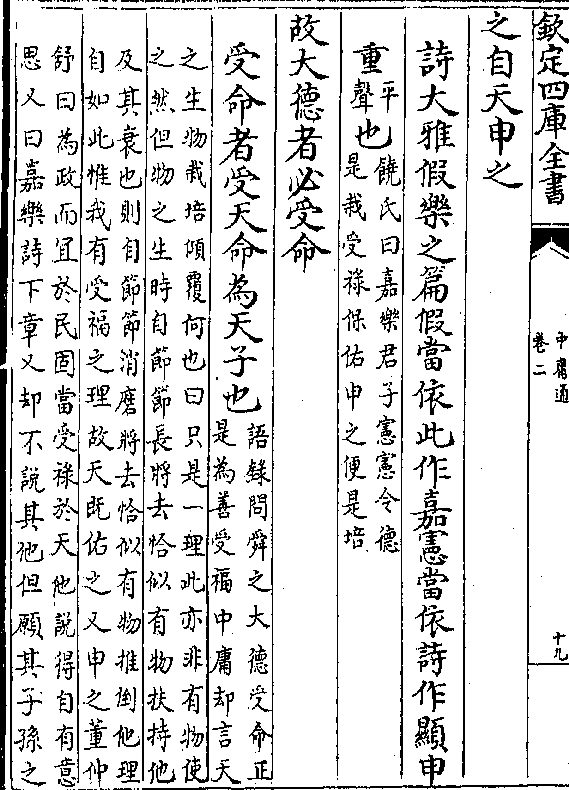 欽定四庫全書
中庸通
卷二
十九
之自天申之
詩大雅假樂之篇假當依此作嘉憲當依詩作顯申
重平聲也饒氏曰嘉樂君子憲憲令德
是栽受祿保佑申之便是培
故大德者必受命
受命者受天命為天子也語錄問舜之大德受命正
是為善受福中庸却言天
之生物栽培傾覆何也曰只是一理此亦非有物使
之然但物之生時自節節長將去恰似有物扶持他
及其衰也則自節節消磨將去恰似有物推倒他理
自如此惟我有受福之理故天既佑之又申之董仲
舒曰為政而宜於民固當受祿於天他說得自有意
思又曰嘉樂詩下章又却不說其他但願其子孫之